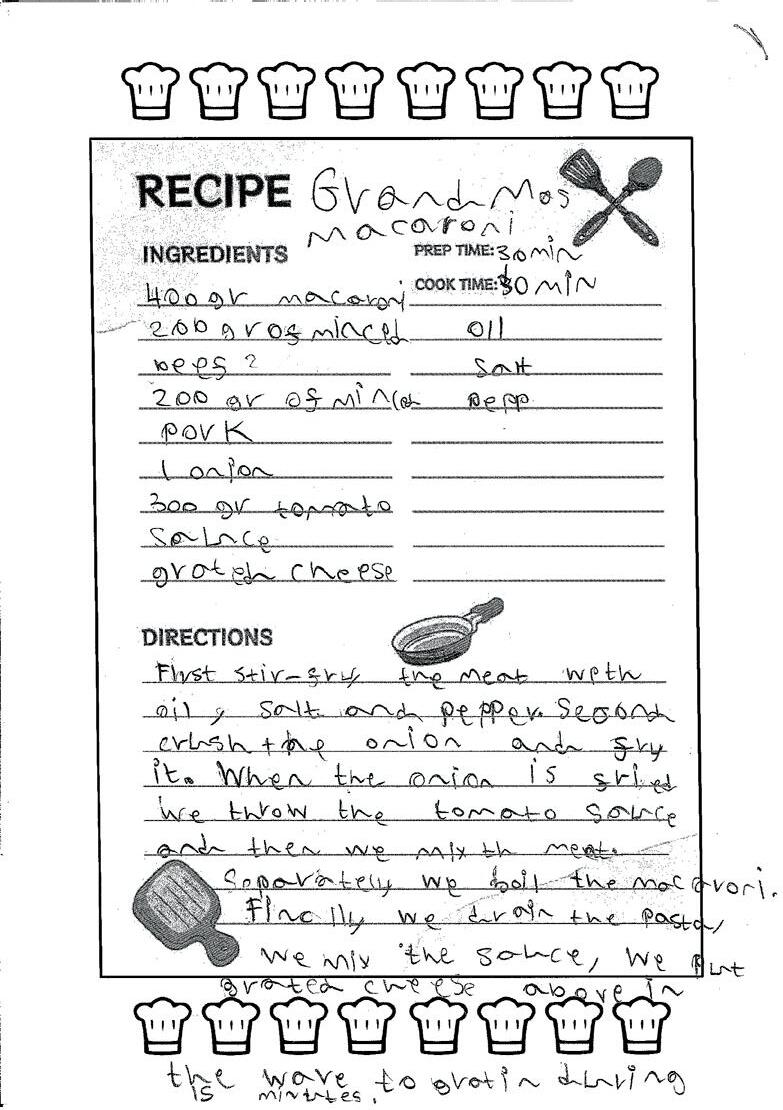 RECIPE GrandMas
macaroni
INGREDIENTS
PREP TIME: 30min
COOK TIME: 30 MIN
400 gr macaroni
200 gr of minced
beef
200 gr of minced
pork
1 onion
300 gr tomato
sauce
grated cheese
oil
salt
pepp
DIRECTIONS
First stir-fry the meat with
oil, salt and pepper. Second
crush the onion and fry
it. When the onion is fried
we throw the tomato sauce
and then we mix th meat.
Separately we boil the macaroni.
Finally we drain the pasta,
we mix the sauce, we put
grated cheese above in
the wave to gratin during
15 minutes.